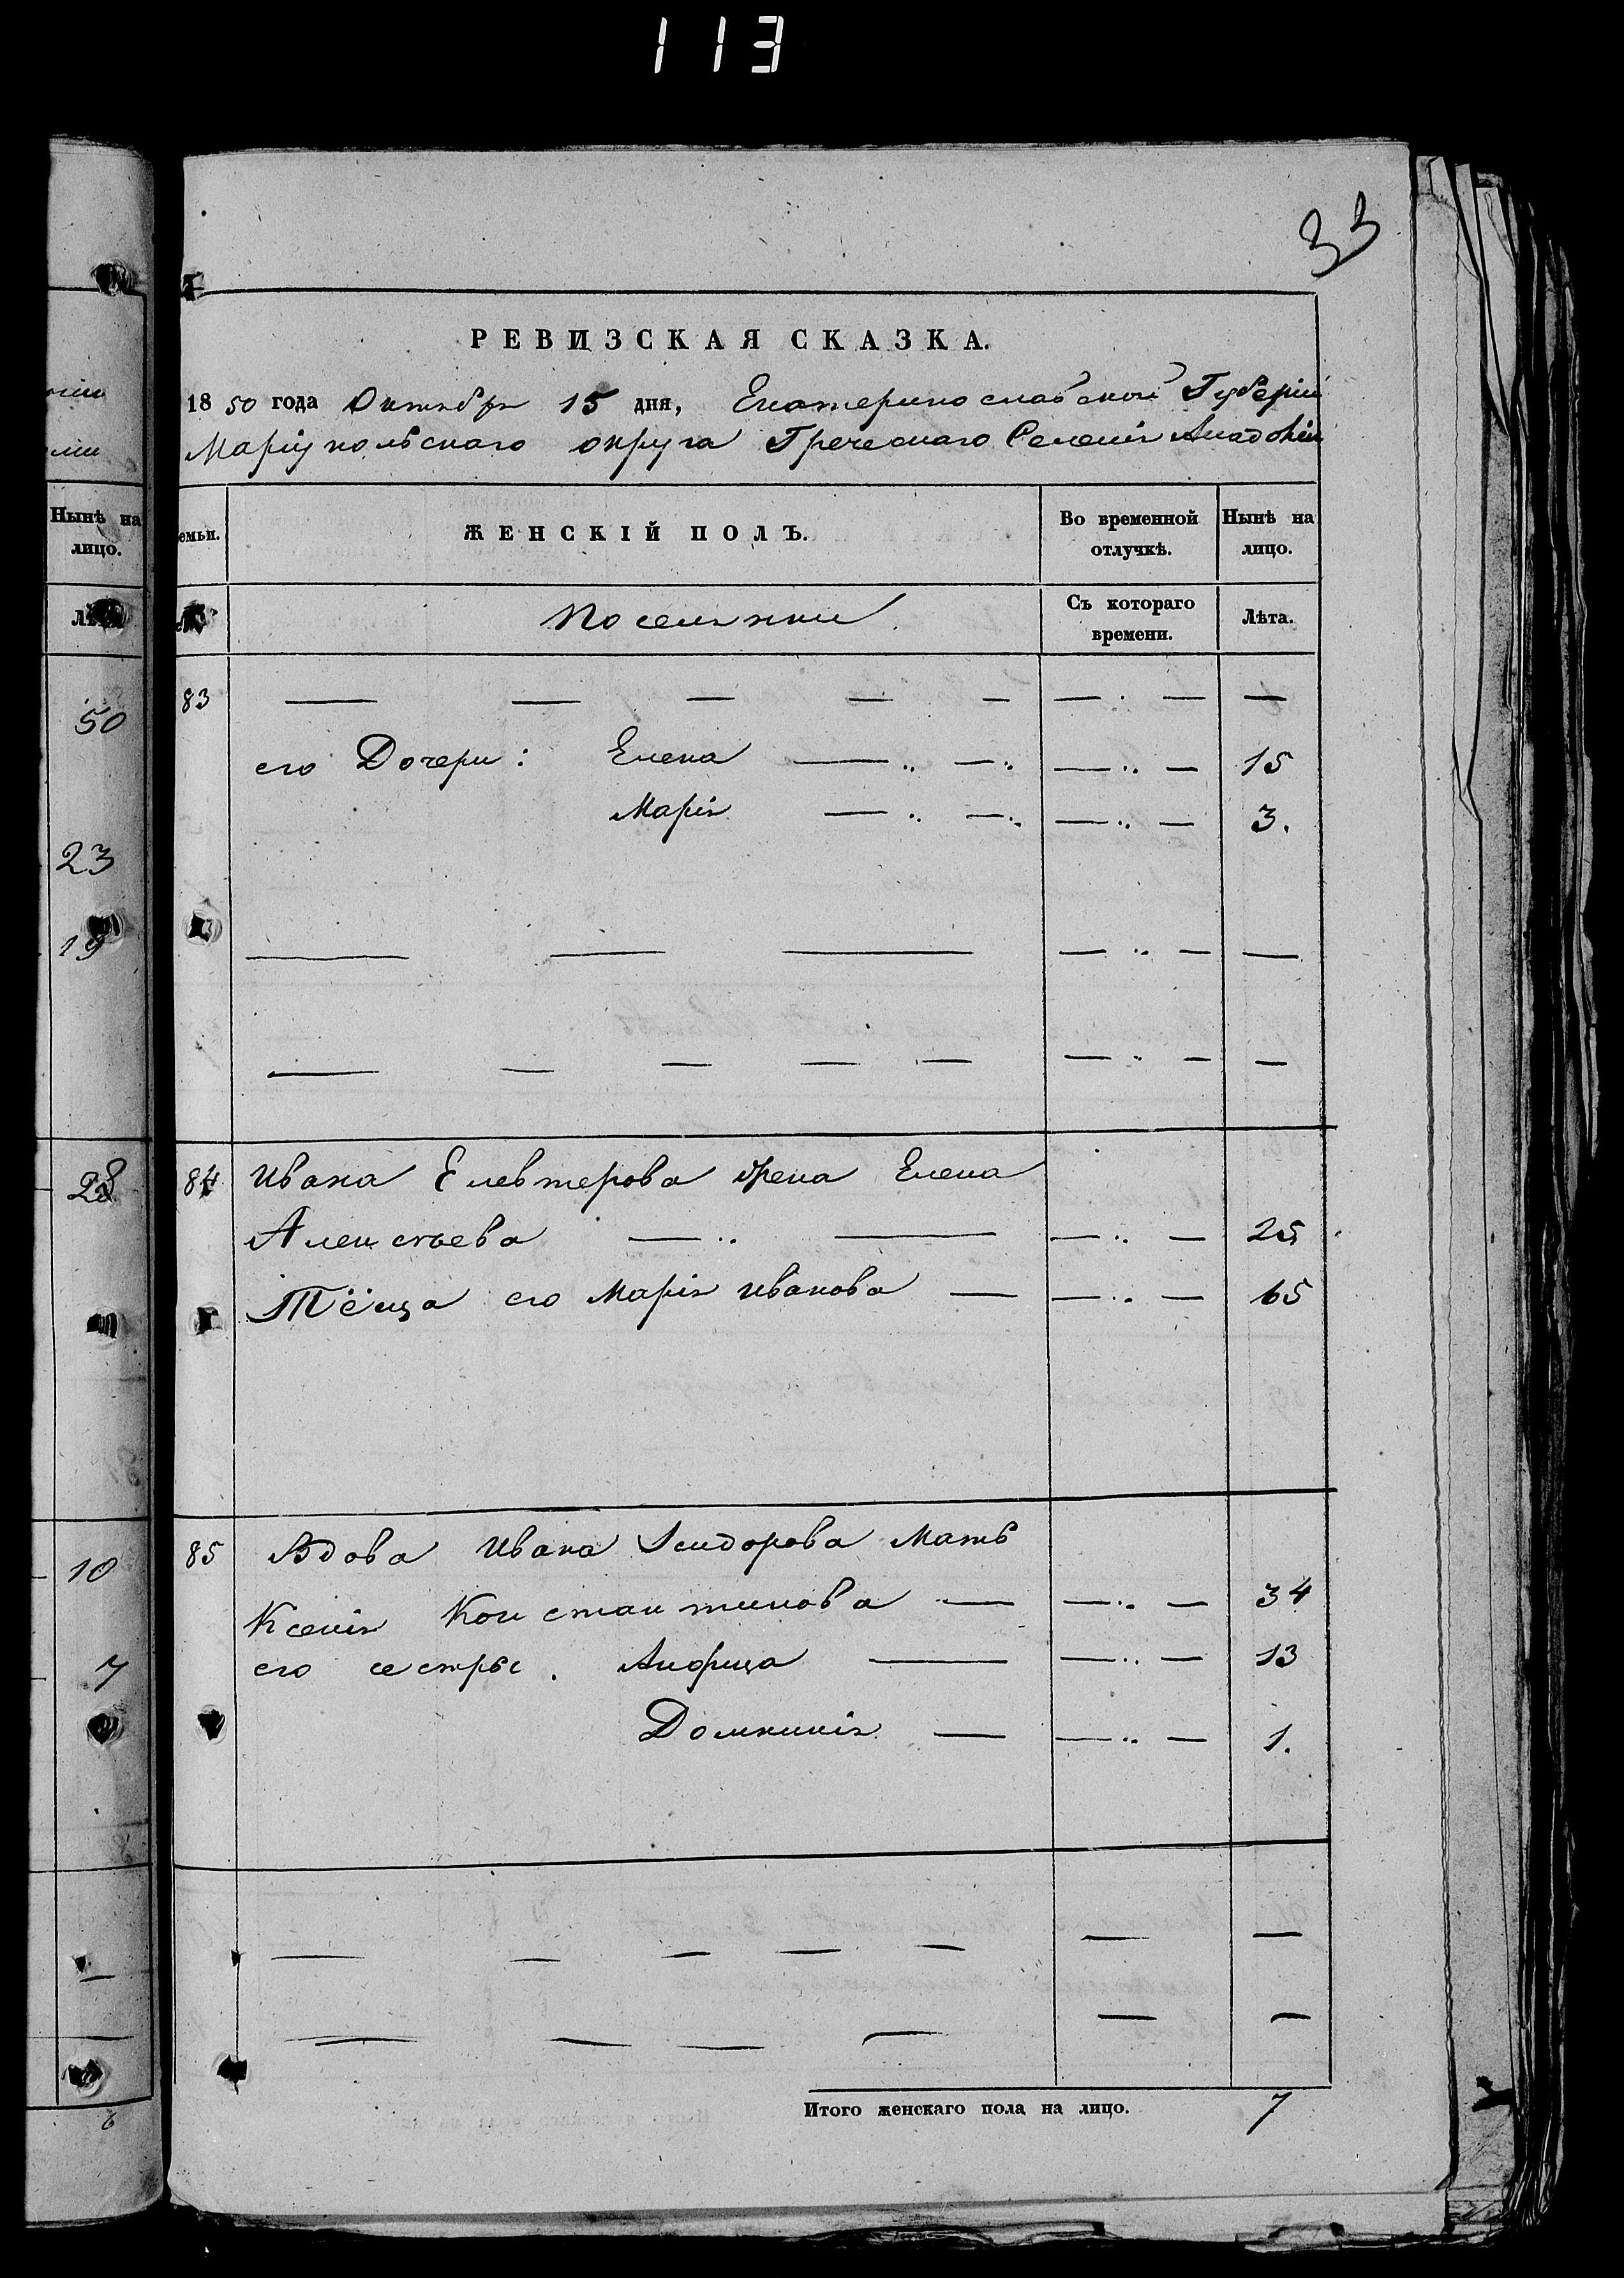 113
33
РЕВИЗСКАЯ СКАЗКА.
1850 года Октября 15 дня, Екатеринославской Губерніи
Маріупольскаго округа Греческаго Селенія
Нынѣ на лицо.
емьи.
ЖЕНСКІЙ ПОЛЪ.
Во временной отлучкѣ.
Нынѣ на лицо.
Поселянки
Съ котораго времени.
Лѣта.
50
23
19
28
10
7
6
83 — — — — — — . — —
его Дочери: Елена — .. — . — .. — 15
Марія — .. — . — .. — 3.
— — — — .. — —
— — — — — — . — —
84 Ивана Елевтерова жена Елена
Алексѣева — .. — — .. — 25
Тёща его Марія Иванова — — .. — 65
85 Вдова Ивана Исидорова Мать
Ксенія Константинова — — .. — 34
его сестры. — — .. — 13
Домникія — — .. — 1.
— — — — — — —
— — — — — —
Итого женскаго пола на лицо. 7